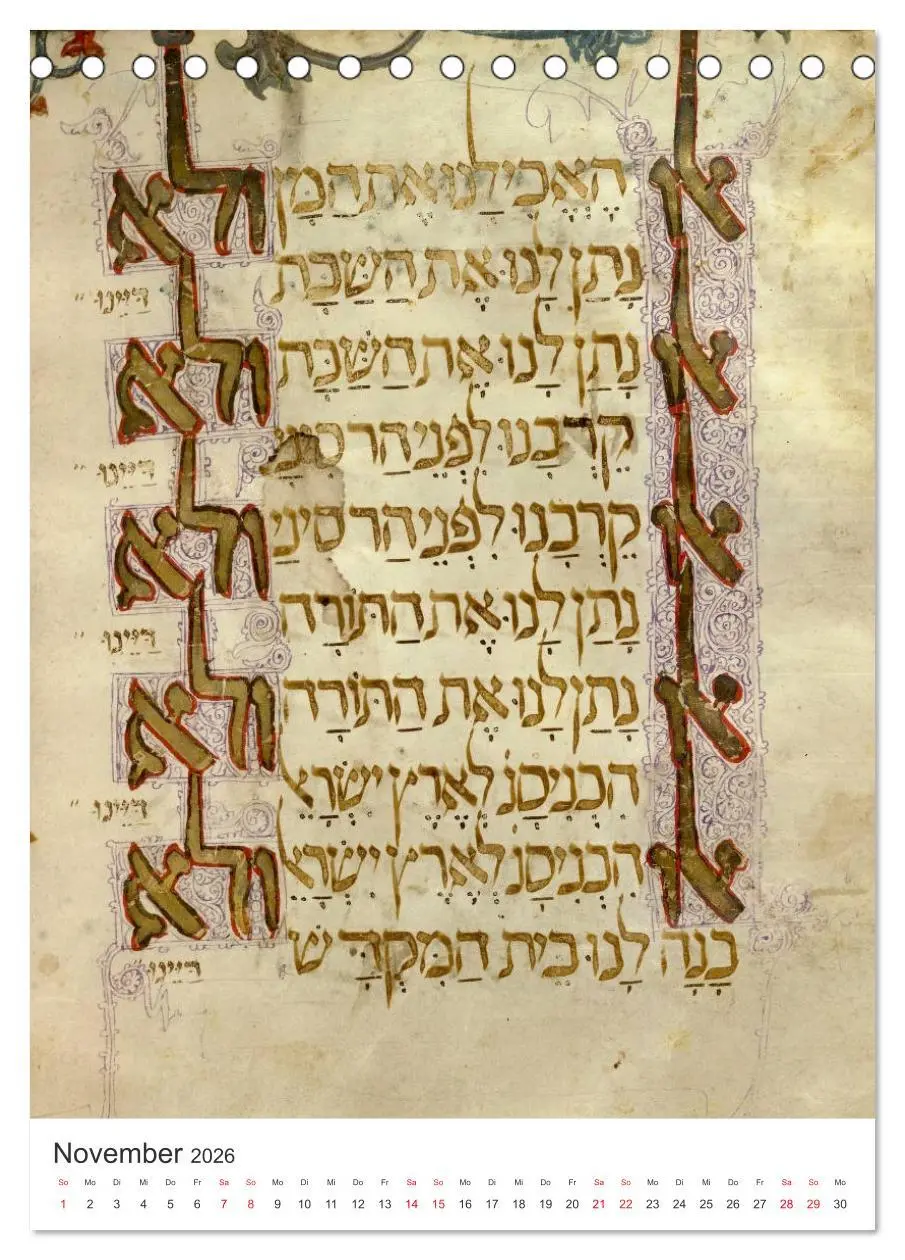 אל האכילנו את המן ולא
נתן לנו את השבת דיינו
אל נתן לנו את השבת ולא
קרבנו לפני הר סיני דיינו
אל קרבנו לפני הר סיני ולא
נתן לנו את התורה דיינו
אל נתן לנו את התורה ולא
הכניסנו לארץ ישראל דיינו
אל הכניסנו לארץ ישראל ולא
בנה לנו בית המקדש דיינו
November 2026
So Mo Di Mi Do Fr Sa So Mo Di Mi Do Fr Sa So Mo Di Mi Do Fr Sa So Mo Di Mi Do Fr Sa So Mo
1 2 3 4 5 6 7 8 9 10 11 12 13 14 15 16 17 18 19 20 21 22 23 24 25 26 27 28 29 30